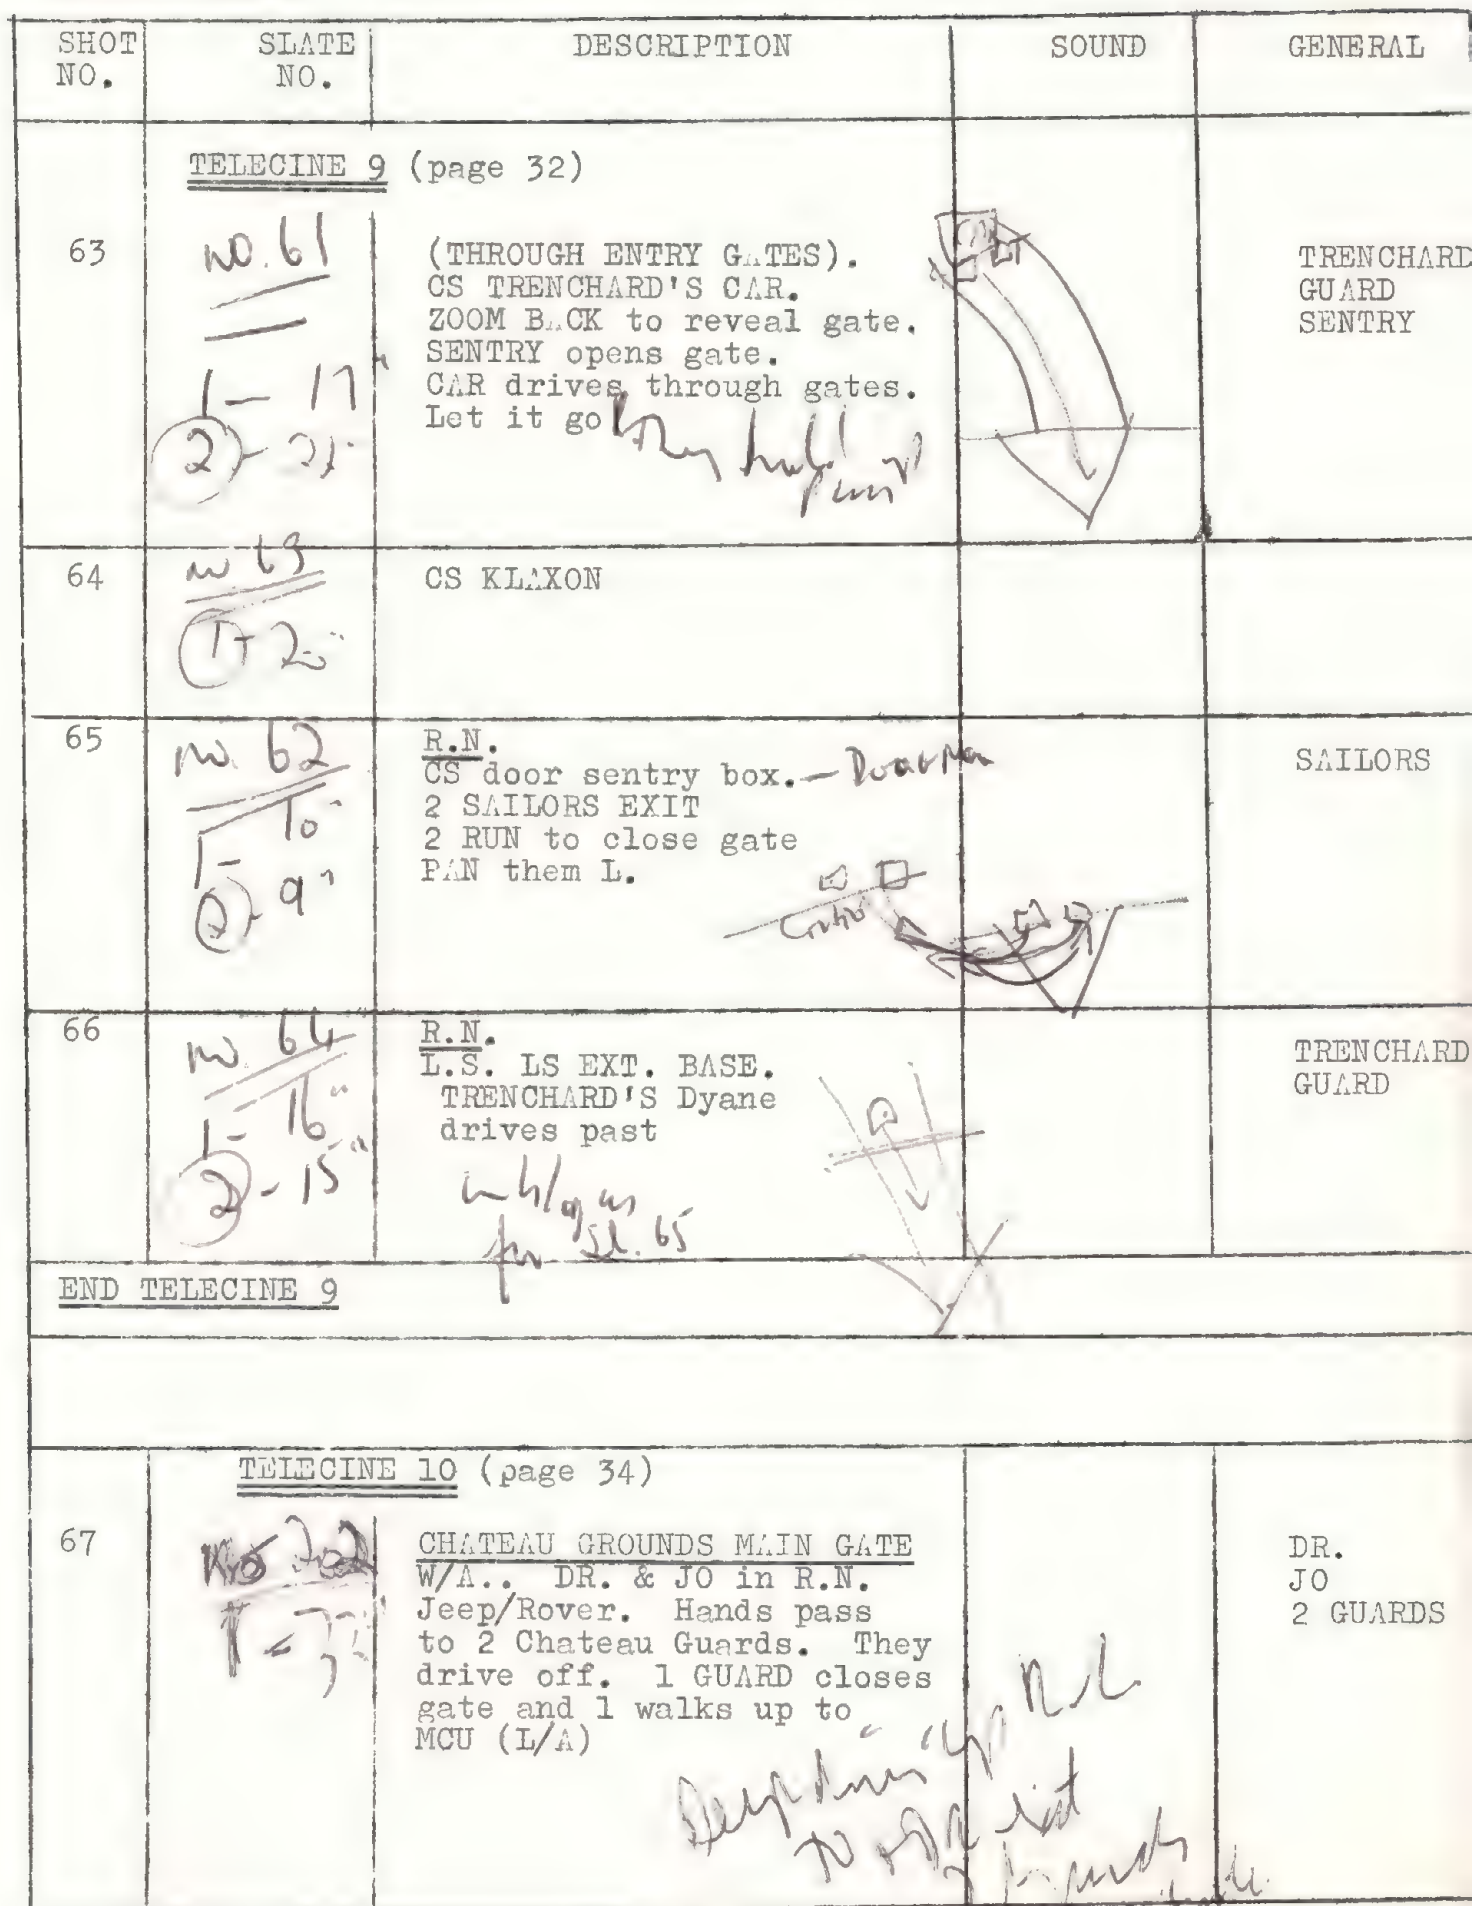 SHOT NO.
SLATE NO.
DESCRIPTION
SOUND
GENERAL
TELECINE 9 (page 32)
63
no. 61
1 - 17"
2 -
(THROUGH ENTRY GATES).
CS TRENCHARD'S CAR.
ZOOM BACK to reveal gate.
SENTRY opens gate.
CAR drives through gates.
Let it go
TRENCHARD
GUARD
SENTRY
64
no 63
1 - 20"
CS KLAXON
65
no. 62
1 - 10"
2 - 9"
R.N.
CS door sentry box. -
2 SAILORS EXIT
2 RUN to close gate
PAN them L.
SAILORS
66
no. 64
1 - 16"
2 - 15"
R.N.
L.S. LS EXT. BASE.
TRENCHARD'S Dyane
drives past
for Sl. 65
TRENCHARD
GUARD
END TELECINE 9
TELECINE 10 (page 34)
67
CHATEAU GROUNDS MAIN GATE
W/A.. DR. & JO in R.N.
Jeep/Rover. Hands pass
to 2 Chateau Guards. They
drive off. 1 GUARD closes
gate and 1 walks up to
MCU (L/A)
DR.
JO
2 GUARDS